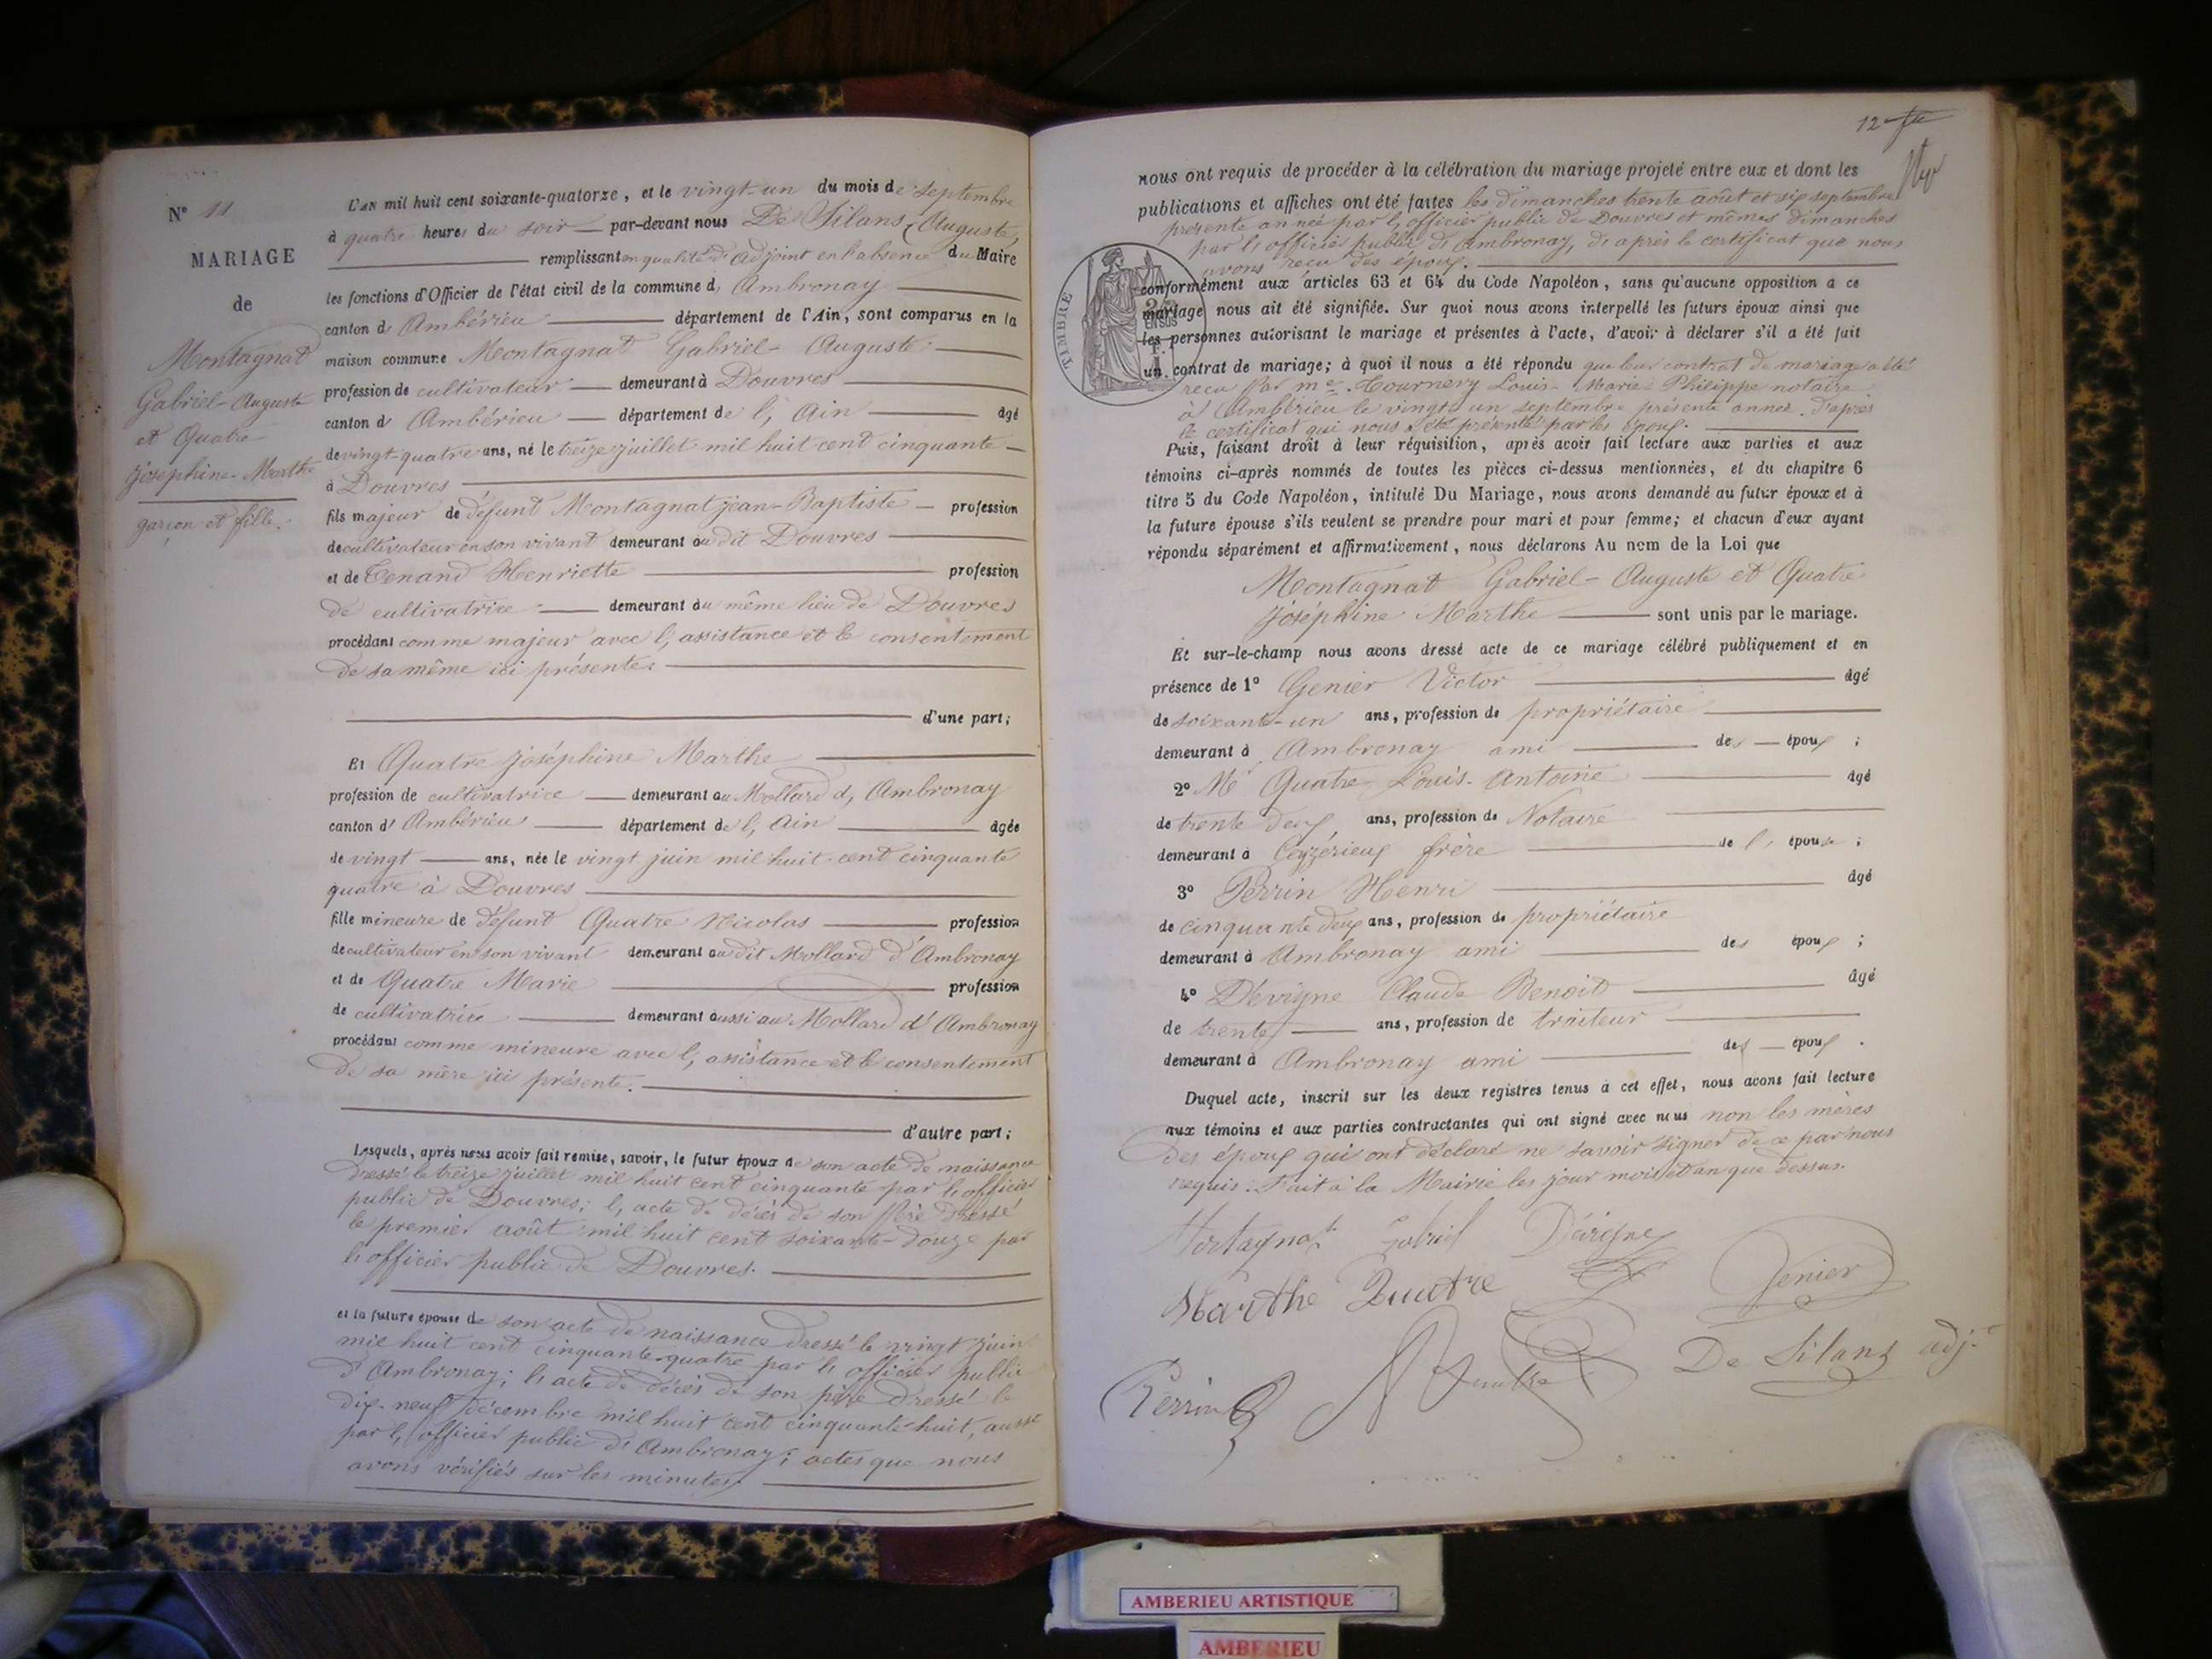 N° 11
MARIAGE
de
Montagnat
Gabriel-Auguste
et Quatre
Joséphine-Marthe
garçon et fille.
L'AN mil huit cent soixante-quatorze, et le vingt-un du mois de septembre
à quatre heures du soir par-devant nous De Silans, Auguste,
remplissant en qualité d'adjoint en l'absence du Maire
les fonctions d'Officier de l'état civil de la commune d, Ambronay
canton d' Ambérieu département de l'Ain, sont comparus en la
maison commune Montagnat Gabriel-Auguste
profession de cultivateur demeurant à Douvres
canton d' Ambérieu département de l, Ain âgé
de vingt-quatre ans, né le treize juillet mil huit cent cinquante
à Douvres
fils majeur de défunt Montagnat Jean-Baptiste profession
de cultivateur en son vivant demeurant au dit Douvres
et de Tenand Henriette profession
de cultivatrice demeurant au même lieu de Douvres
procédant comme majeur avec l, assistance et le consentement
de sa même ici présente.
d'une part;
Et Quatre Joséphine Marthe
profession de cultivatrice demeurant au Mollard d, Ambronay
canton d' Ambérieu département de l, Ain âgée
de vingt ans, née le vingt juin mil huit cent cinquante
quatre à Douvres
fille mineure de défunt Quatre Nicolas profession
de cultivateur en son vivant demeurant au dit Mollard d'Ambronay
et de Quatre Marie profession
de cultivatrice demeurant aussi au Mollard d'Ambronay
procédant comme mineure avec l, assistance et le consentement
de sa mère ici présente.
d'autre part;
Lesquels, après nous avoir fait remise, savoir, le futur époux de son acte de naissance
dressé le treize juillet mil huit cent cinquante par l, officier
public de Douvres; l, acte de décès de son père dressé
le premier août mil huit cent soixante-douze par
l, officier public de Douvres.
et la future épouse de son acte de naissance dressé le vingt juin
mil huit cent cinquante-quatre par l, officier public
d'Ambronay; l, acte de décès de son père dressé le
dix-neuf décembre mil huit cent cinquante-huit, aussi
par l, officier public d'Ambronay; actes que nous
avons vérifiés sur les minutes.
12
nous ont requis de procéder à la célébration du mariage projeté entre eux et dont les
publications et affiches ont été faites les dimanches trente août et six septembre
présente année par l, officier public de Douvres et mêmes dimanches
par l, officier public d'Ambronay, d, après le certificat que nous
avons reçu des époux.
TIMBRE
EN SUS
conformément aux articles 63 et 64 du Code Napoléon, sans qu'aucune opposition à ce
mariage nous ait été signifiée. Sur quoi nous avons interpellé les futurs époux ainsi que
les personnes autorisant le mariage et présentes à l'acte, d'avoir à déclarer s'il a été fait
un contrat de mariage; à quoi il nous a été répondu que leur contrat de mariage a été
reçu par me. Tournery Louis-Marie Philippe notaire
à Ambérieu le vingt un septembre présente année. D'après
le certificat qui nous a été présenté par les époux.
Puis, faisant droit à leur réquisition, après avoir fait lecture aux parties et aux
témoins ci-après nommés de toutes les pièces ci-dessus mentionnées, et du chapitre 6
titre 5 du Code Napoléon, intitulé Du Mariage, nous avons demandé au futur époux et à
la future épouse s'ils veulent se prendre pour mari et pour femme; et chacun d'eux ayant
répondu séparément et affirmativement, nous déclarons Au nom de la Loi que
Montagnat Gabriel-Auguste et Quatre
Joséphine Marthe sont unis par le mariage.
Et sur-le-champ nous avons dressé acte de ce mariage célébré publiquement et en
présence de 1° Genier Victor âgé
de soixante-un ans, profession de propriétaire
demeurant à Ambronay ami des époux ;
2° Mr Quatre Louis-Antoine âgé
de trente deux ans, profession de Notaire
demeurant à Ceyzérieux frère de l, épouse ;
3° Perrin Henri âgé
de cinquante deux ans, profession de propriétaire
demeurant à Ambronay ami des époux ;
4° Dévigne Claude Benoit âgé
de trente ans, profession de traiteur
demeurant à Ambronay ami des époux .
Duquel acte, inscrit sur les deux registres tenus à cet effet, nous avons fait lecture
aux témoins et aux parties contractantes qui ont signé avec nous non les mères
des époux qui ont déclaré ne savoir signer de ce par nous
requis. Fait à la Mairie les jour mois et an que dessus.
Montagnat Gabriel Dévigne
Marthe Quatre Génier
Perrin Quatre De Silans adjt
AMBERIEU ARTISTIQUE
AMBERIEU